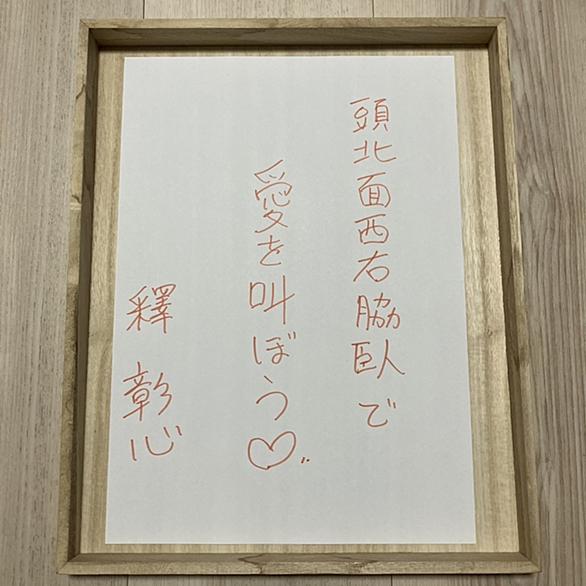 頭北面西右脇臥で
愛を叫ぼう♡..
釋 彰心